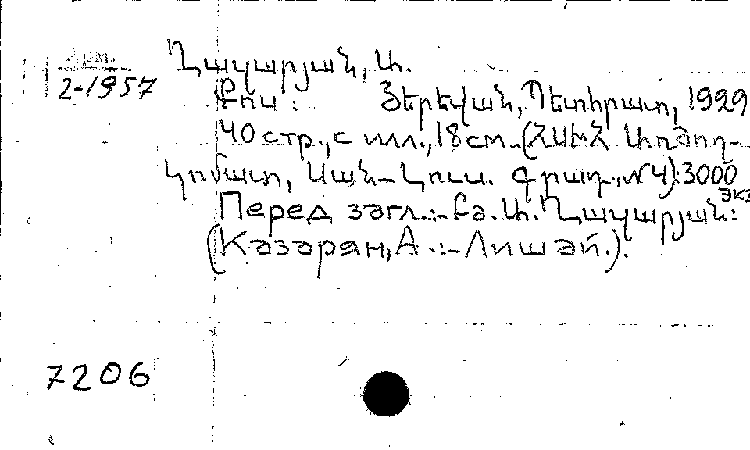 Арм.
2-1957
Ղազարյան, Ա.
Քոս: Յերեվան, Պետհրատ, 1929
40 стр., с илл., 18 см. (ՀՍԽՀ Առժող-
կոմատ, Սան-Լուս. գրադ., №4). 3000
экз
Перед загл.:- Բժ. Ա. Ղազարյան:
(Казарян, А.:- Лишай.).
7206